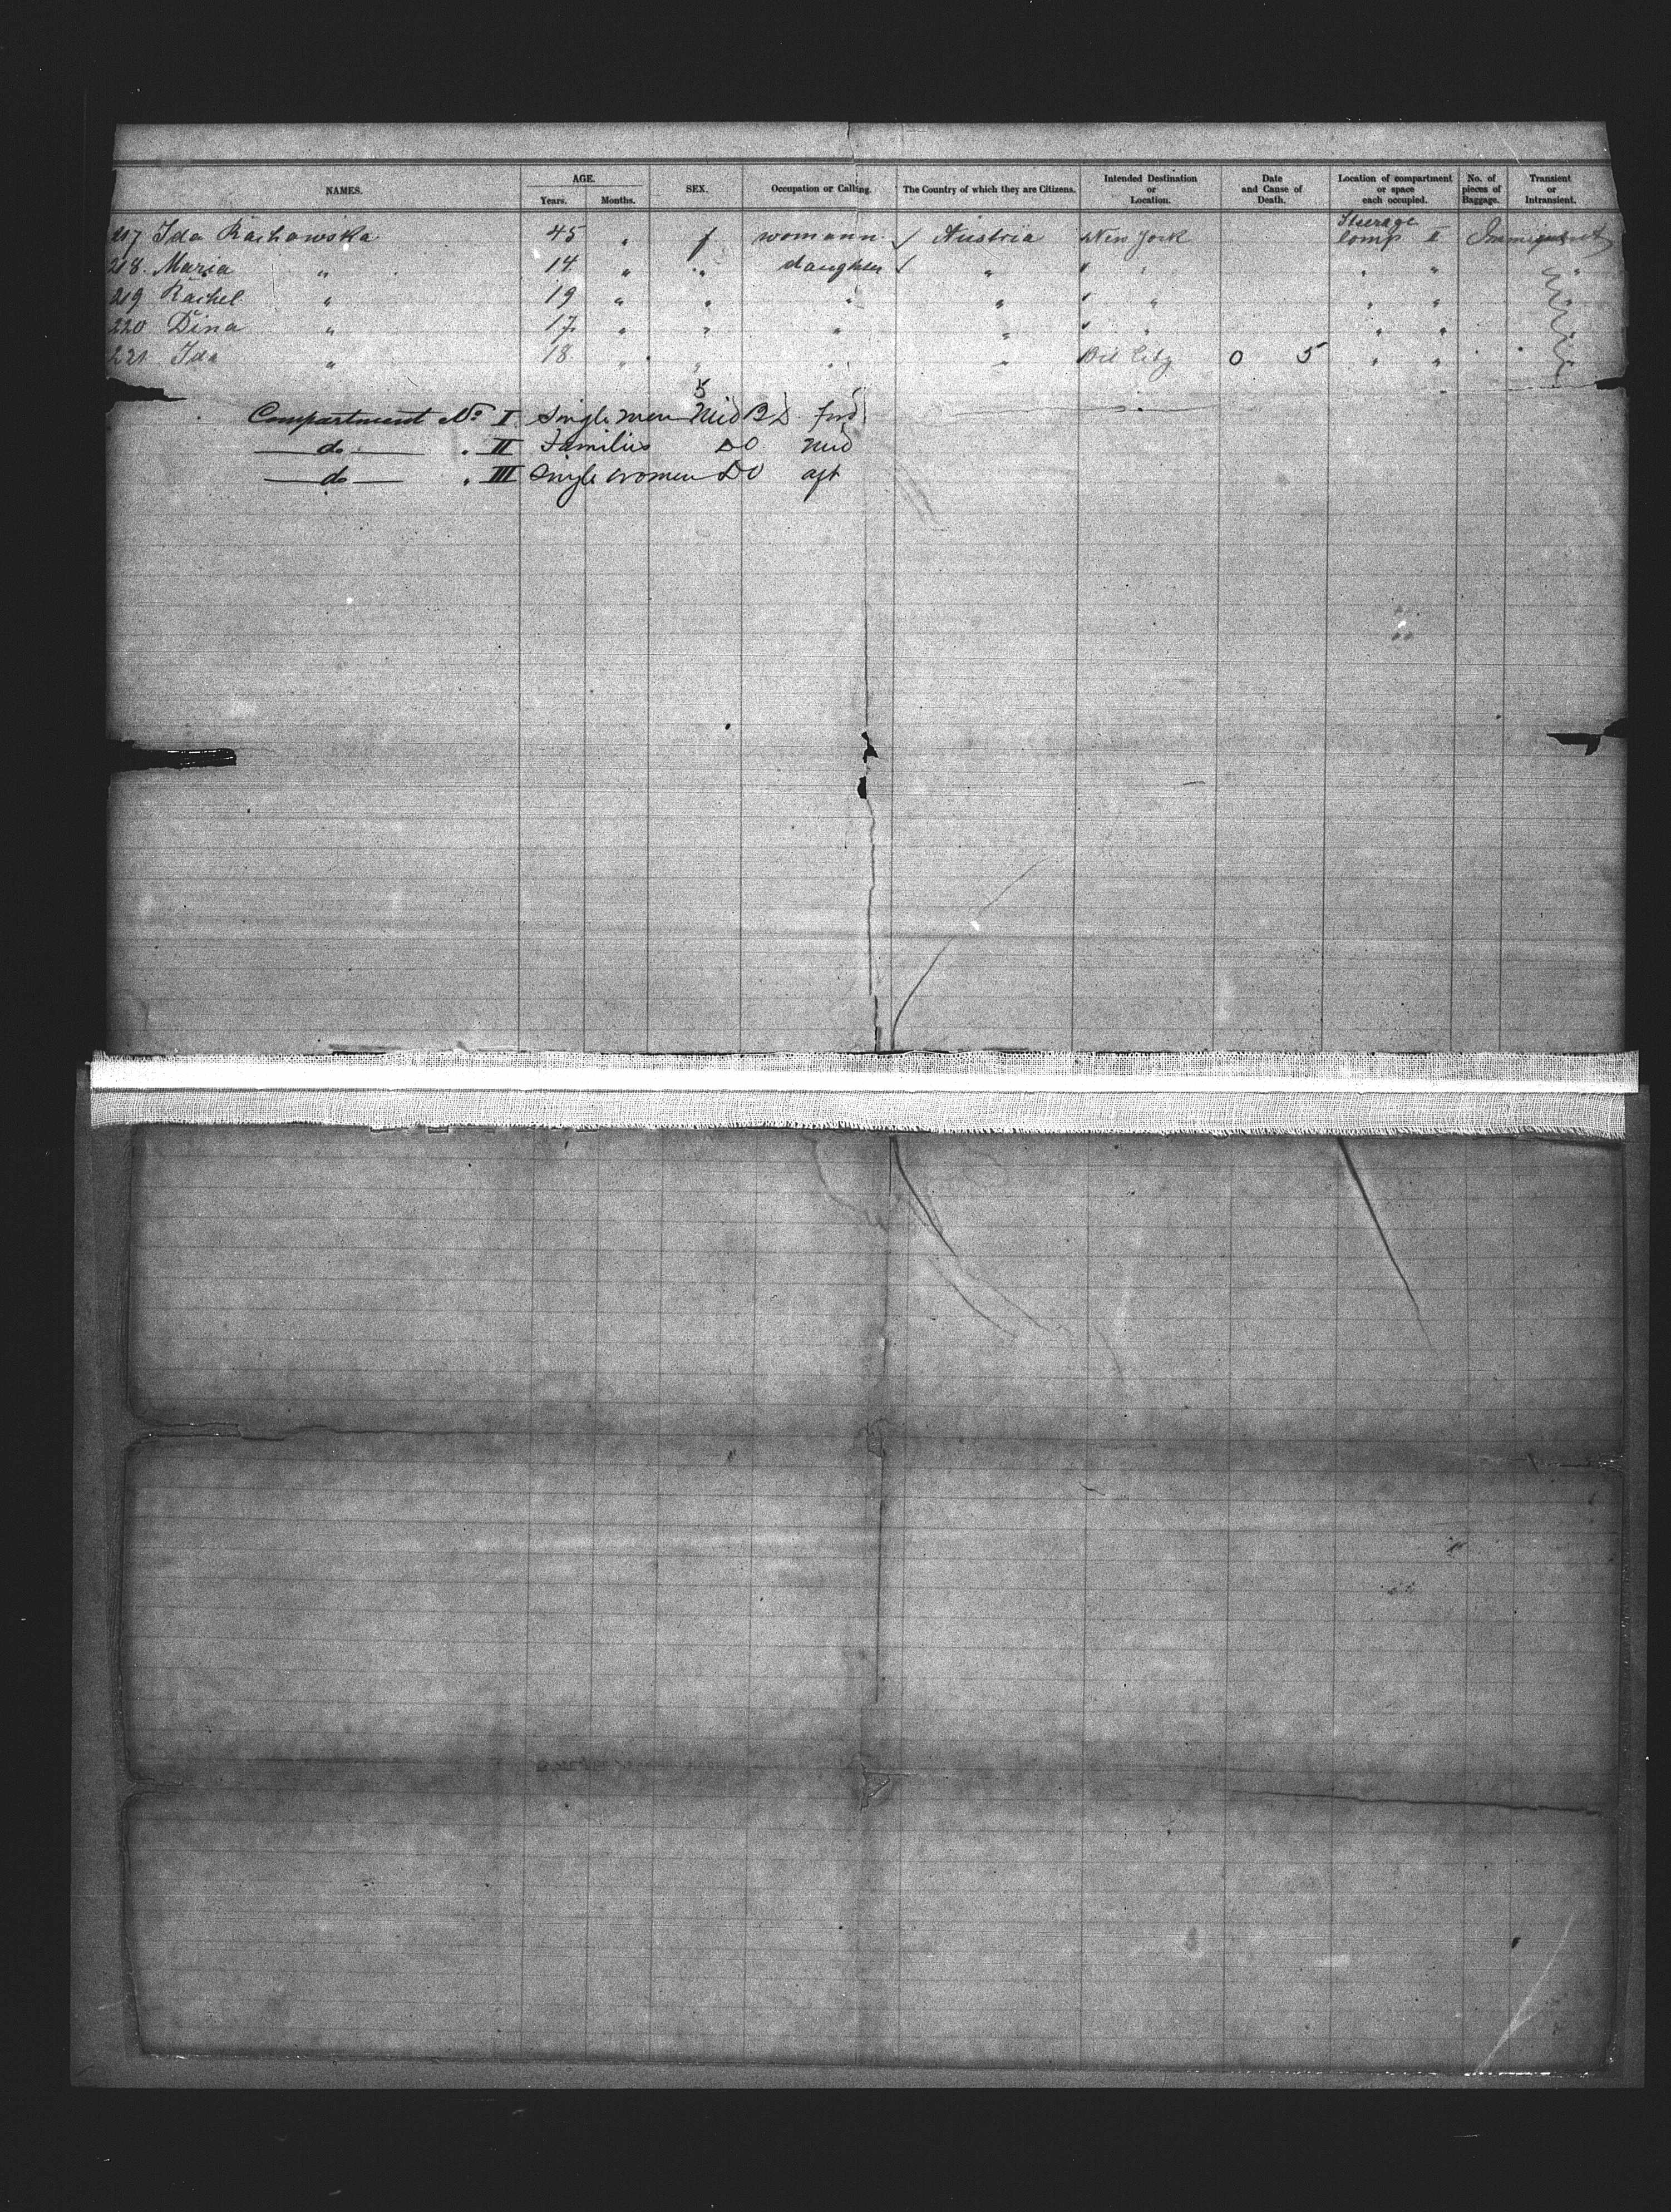 NAMES. AGE. Years. Months. SEX. Occupation or Calling. The Country of which they are Citizens. Intended Destination or Location. Date and Cause of Death. Location of compartment or space each occupied. No. of pieces of Baggage. Transient or Intransient.
217 Ida Rachowska 45 " f womann ✓ Austria New York Steerage Comp II Immigrant
218. Maria " 14 " " daughter ✓ " " " " "
219 Rachel " 19 " " " " " " " "
220 Dina " 17 " " " " " " " "
221 Ida " 18 " " " " 0 5 " "
5
Compartment No I Single men Mid B D Fwd
do " II Families DO Mid
do " III Single women DO aft